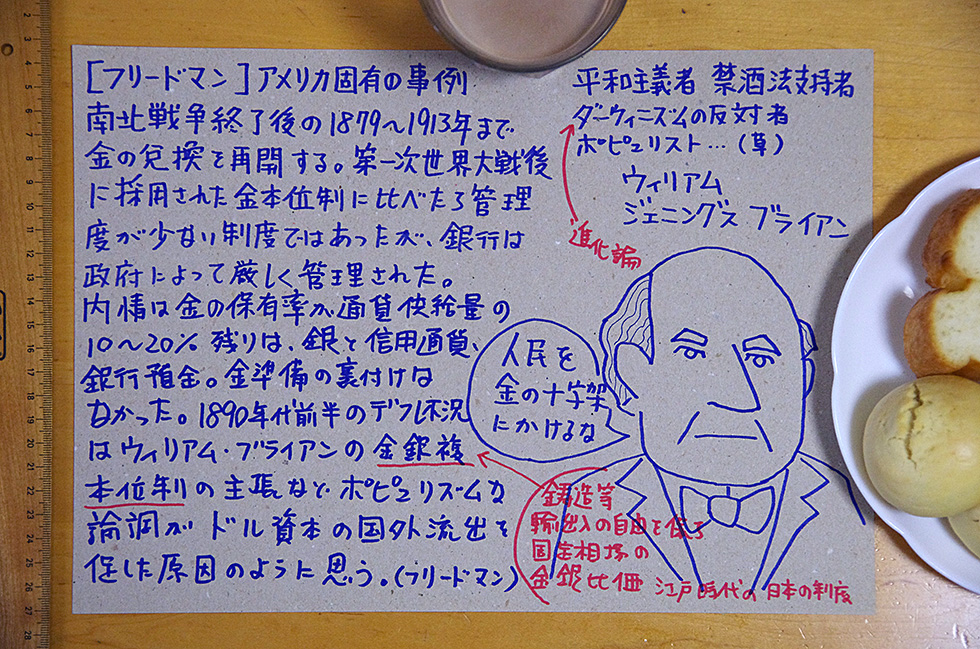 [フリードマン]アメリカ固有の事例
南北戦争終了後の1879〜1913年まで
金の兌換を再開する。第一次世界大戦後
に採用された金本位制に比べたら管理
度が少ない制度ではあったが、銀行は
政府によって厳しく管理された。
内情は金の保有率が通貨供給量の
10〜20% 残りは、銀と信用通貨、
銀行預金。金準備の裏付けは
なかった。1890年代前半のデフレ不況
はウィリアム・ブライアンの金銀複
本位制の主張など ポピュリズムな
論調が ドル資本の国外流出を
促した原因のように思う。(フリードマン)
平和主義者 禁酒法支持者
ダーウィニズムの反対者
ポピュリスト…(草)
ウィリアム
ジェニングス ブライアン
進化論
人民を
金の十字架
にかけるな
鋳造等
輸出入の自由を保つ
固定相場の
金銀比価 江戸時代の日本の制度
2
3
4
5
6
7
8
9
10
11
12
13
14
15
16
17
18
19
20
21
22
23
24
25
26
27
28